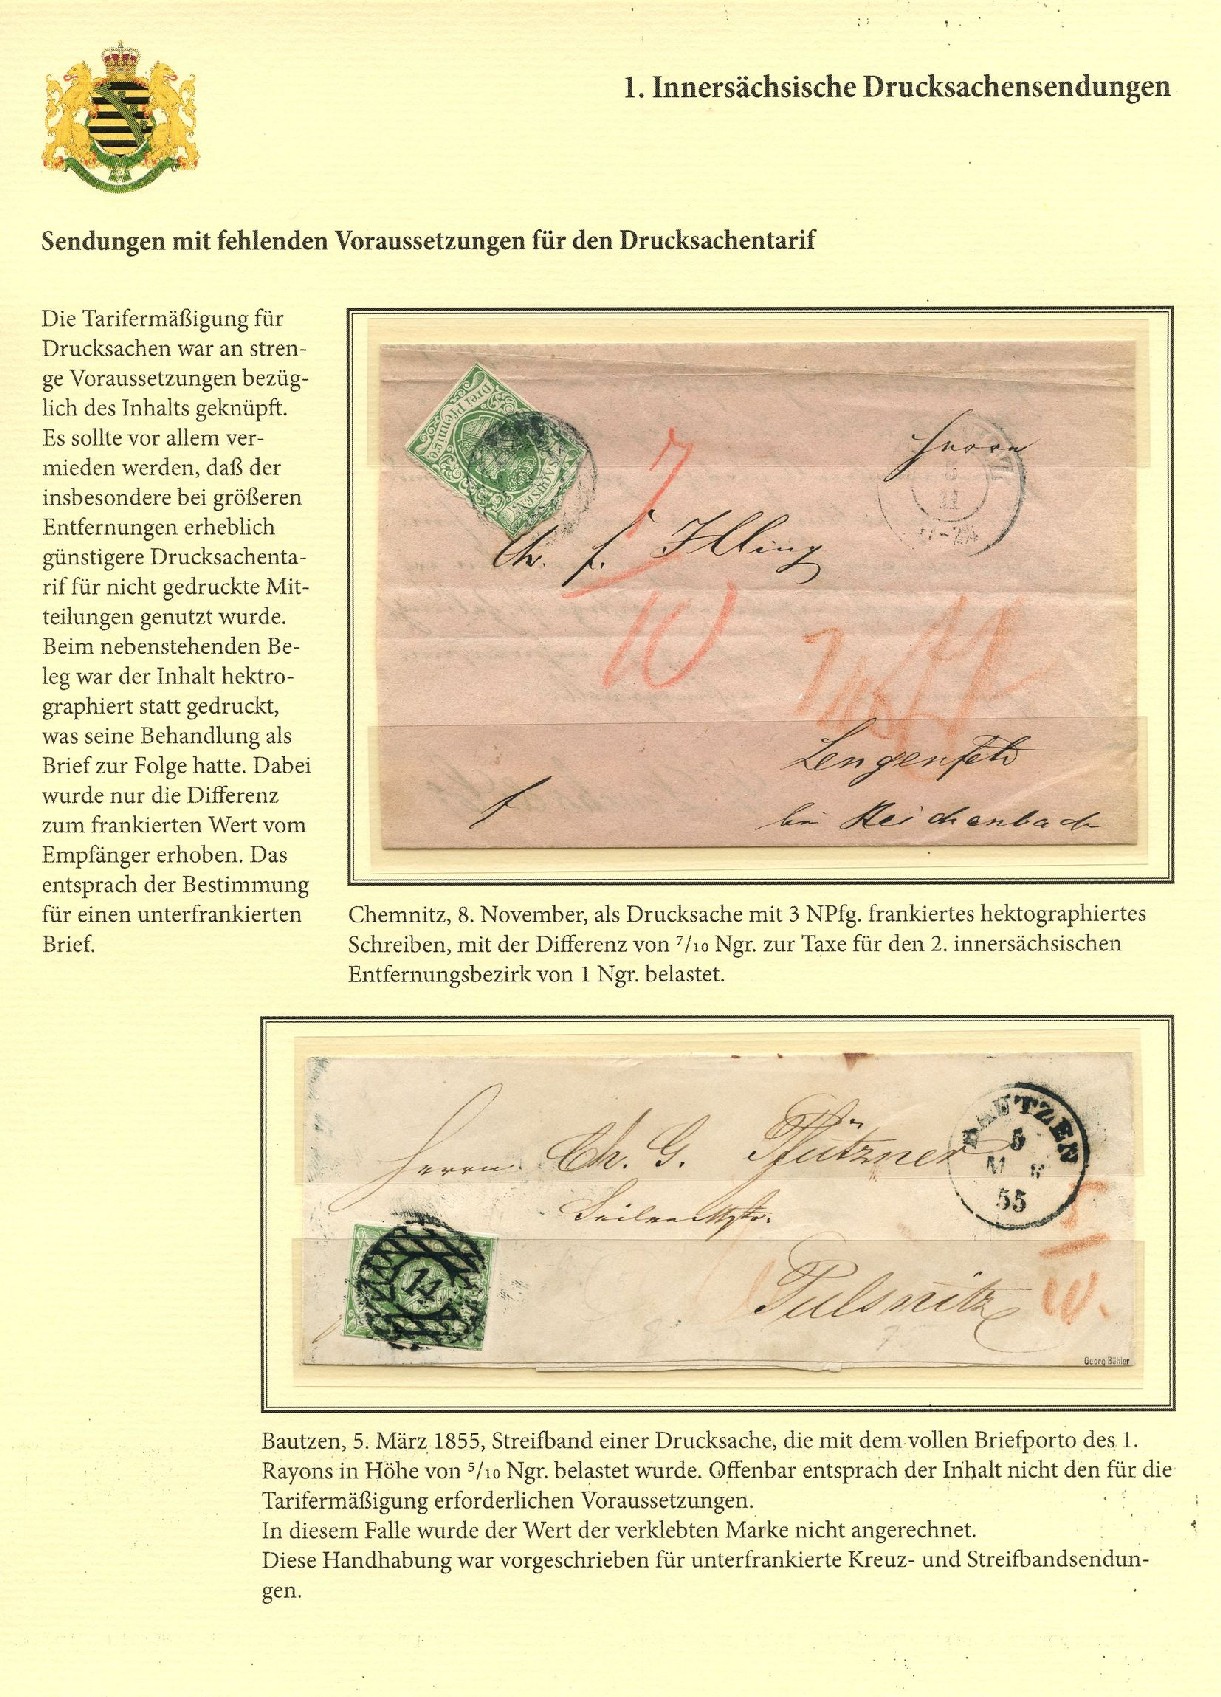 1. Innersächsische Drucksachensendungen
Sendungen mit fehlenden Voraussetzungen für den Drucksachentarif
Die Tarifermäßigung für
Drucksachen war an stren-
ge Voraussetzungen bezüg-
lich des Inhalts geknüpft.
Es sollte vor allem ver-
mieden werden, daß der
insbesondere bei größeren
Entfernungen erheblich
günstigere Drucksachenta-
rif für nicht gedruckte Mit-
teilungen genutzt wurde.
Beim nebenstehenden Be-
leg war der Inhalt hekto-
graphiert statt gedruckt,
was seine Behandlung als
Brief zur Folge hatte. Dabei
wurde nur die Differenz
zum frankierten Wert vom
Empfänger erhoben. Das
entsprach der Bestimmung
für einen unterfrankierten
Brief.
Drei Pfennige
Herrn
8
11
Chr. f. Illing
7
10
Lengenfeld
bei Reichenbach
Chemnitz, 8. November, als Drucksache mit 3 NPfg. frankiertes hektographiertes
Schreiben, mit der Differenz von 7/10 Ngr. zur Taxe für den 2. innersächsischen
Entfernungsbezirk von 1 Ngr. belastet.
Herrn Ch. G. Pfützner
BAUTZEN
5
55
14
5
10.
Pulsnitz
Georg Bühler
Bautzen, 5. März 1855, Streifband einer Drucksache, die mit dem vollen Briefporto des 1.
Rayons in Höhe von 5/10 Ngr. belastet wurde. Offenbar entsprach der Inhalt nicht den für die
Tarifermäßigung erforderlichen Voraussetzungen.
In diesem Falle wurde der Wert der verklebten Marke nicht angerechnet.
Diese Handhabung war vorgeschrieben für unterfrankierte Kreuz- und Streifbandsendun-
gen.